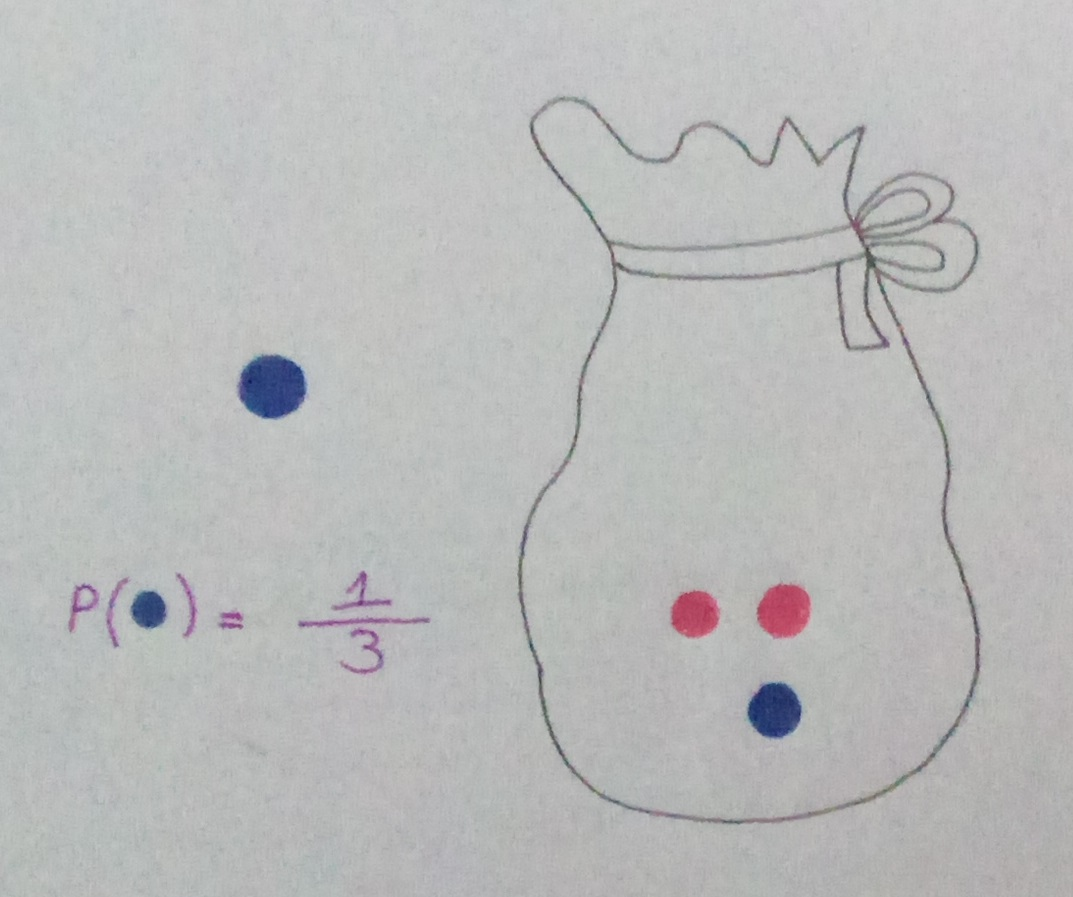 P(●) = 1/3